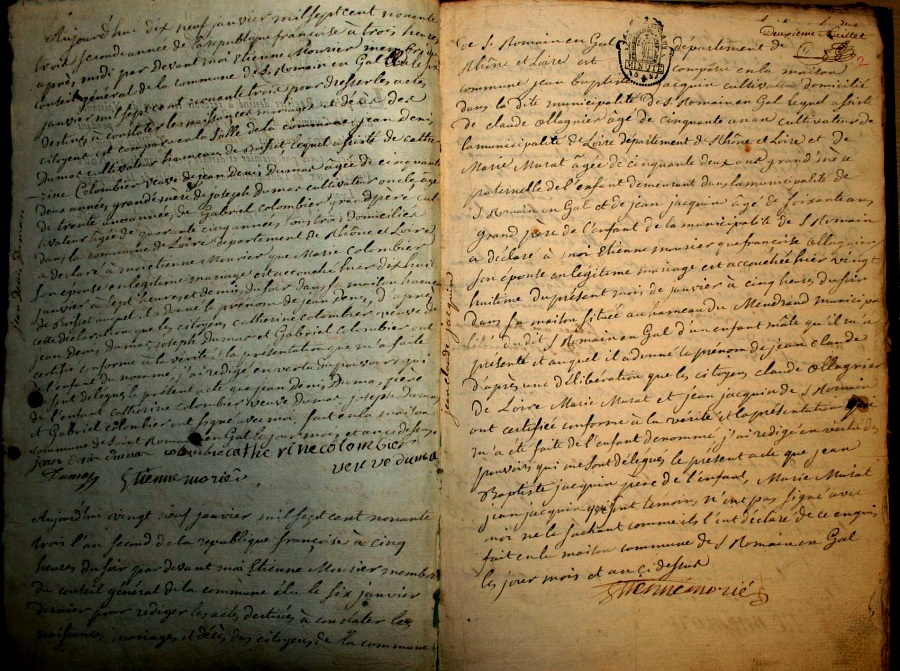 Aujourd'hui dix neuf janvier mil sept cent nonante
trois second année de la republique françoise à trois heures
après midi par devant moi Etienne Mourier membre du
conseil général de la commune de S. Romain en Gal élu le six
janvier mil sept cent nonante trois pour dresser les actes
destinés à constater les naissances mariages et décès des
citoyens est comparu en la salle de la commune jean denis
Dumas cultivateur hameau de Boisset lequel assisté de cathe-
-rine Colombier veuve de jean Denis Dumas âgée de cinquante
deux années, grand mère de joseph Dumas cultivateur oncle, âgé
de trente une années, de Gabriel Colombier, grand père cul
tivateur âgé de quarante cinq années tous trois domiciliés
dans la commune de Loire département de Rhône et Loire
a déclaré à moi etienne Mourier que Marie Colombier
son épouse en legitime mariage est accouchée hier dix huit
janvier à sept heures et demi du soir dans sa maison hameau
de Boisset au quel il a donné le prénom de jean denis, d'après
cette déclaration que les citoyens, catherine colombier veuve de
jean denis Dumas, joseph Dumas et Gabriel Colombier ont
certifié conforme à la vérité et la présentation qui m'a été faite
de l'enfant dénommé, j'ai rédigé en vertu des pouvoirs qui
me sont delegués le présent acte que jean Denis Dumas père
de l'enfant Catherine Colombier veuve Dumas, joseph Dumas
et Gabriel colombier ont signé avec moi, fait en la maison
commune de Saint Romain en Gal le jour mois et an ci dessus
jean denis dumas colombié catherine colombier
Dumas veuve dumas
Etienne morié
Aujourd'hui vingt neuf janvier mil sept cent nonante
trois l'an second de la republique françoise à cinq
heures du soir par devant moi Etienne Mourier membre
du conseil général de la commune élu le six janvier
dernier pour rediger les actes destinés à constater les
naissances, mariages et décès des citoyens de la commune
jean denis dumas
Deuxieme feuillet
2
de S. Romain en Gal département de
Rhône et Loire est comparu en la maison
commune jean baptiste jacquin cultivateur domicilié
dans la dite municipalité de S Romain en Gal lequel assisté
de claude Ollagnier âgé de cinquante un an cultivateur de
la municipalité de Loire département de Rhône et Loire et de
Marie Murat âgée de cinquante deux ans, grand mère
paternelle de l'enfant demeurant dans la municipalité de
S Romain en Gal et de jean jacquin âgé de soixante ans
grand pere de l'enfant de la municipalité de S Romain
a déclaré à moi Etienne mourier que françoise Ollagnier
son épouse en legitime mariage est accouchée hier vingt
huitime du présent mois de janvier à cinq heures du soir
dans sa maison située au hameau du Mendrand municipa
lité du dit S Romain en Gal d'un enfant mâle qu'il m'a
présenté et auquel il a donné le prénom de jean claude
d'après une déliberation que les citoyens claude Ollagnier
de Loire Marie Murat et jean jacquin de S Romain
ont certifiée conforme à la verité et la présentation qui
m'a été faite de l'enfant denommé, j'ai redigé en vertu des
pouvoirs qui me sont délegués le présent acte que jean
Baptiste jacquin pere de l'enfant, Marie Murat
jean jacquin temoins n'ont pas signé avec
moi ne le sachant comme ils l'ont déclaré de ce enquis
fait en la maison commune de S Romain en Gal
les jour mois et an ci dessus
Etienne morié
jean claude jacquin
MINUTE